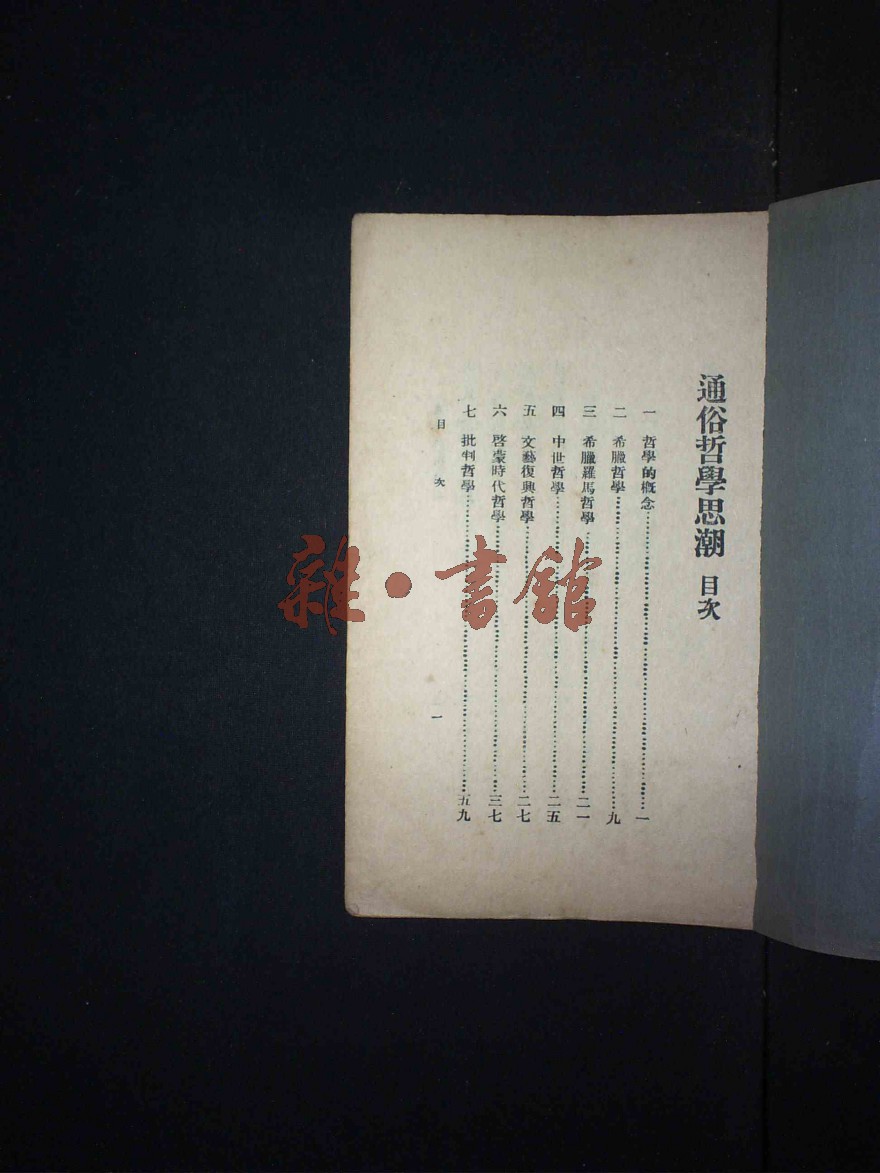 通俗哲學思潮 目次
一 哲學的概念……一
二 希臘哲學……九
三 希臘羅馬哲學……二一
四 中世哲學……二五
五 文藝復興哲學……二七
六 啓蒙時代哲學……三七
七 批判哲學……五九
目次 一
雜·書館